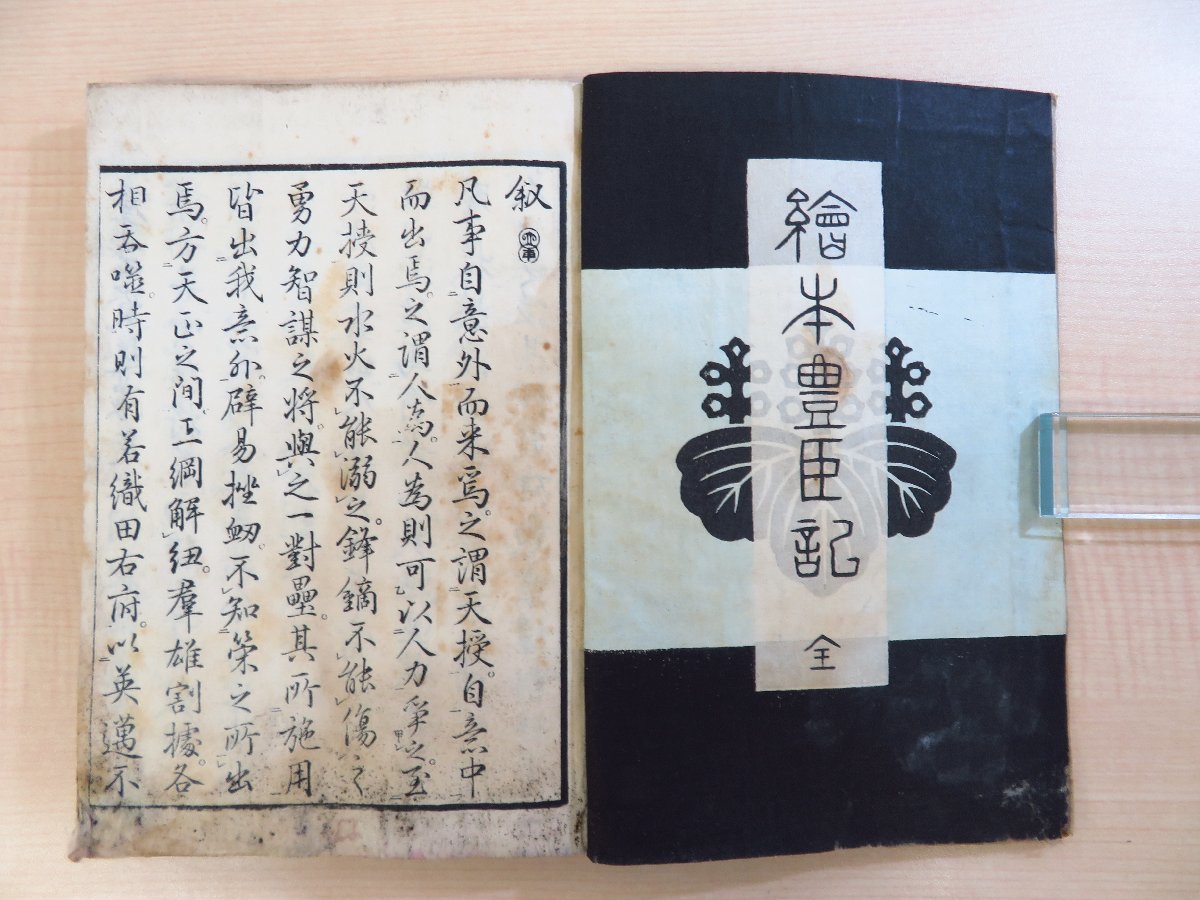 繪本豊臣記
全
叙
凡事自意外而来焉。之謂天授。自意中
而出焉。之謂人為。人為則可以人力爭之。至
天授則水火不能溺之。鋒鏑不能傷之
勇力智謀之將。與之一對壘。其所施用
皆出我意外。辟易挫衂。不知策之所出
焉。方天正之間。王綱解紐。羣雄割據。各
相吞噬。時則有若織田右府。以英邁不